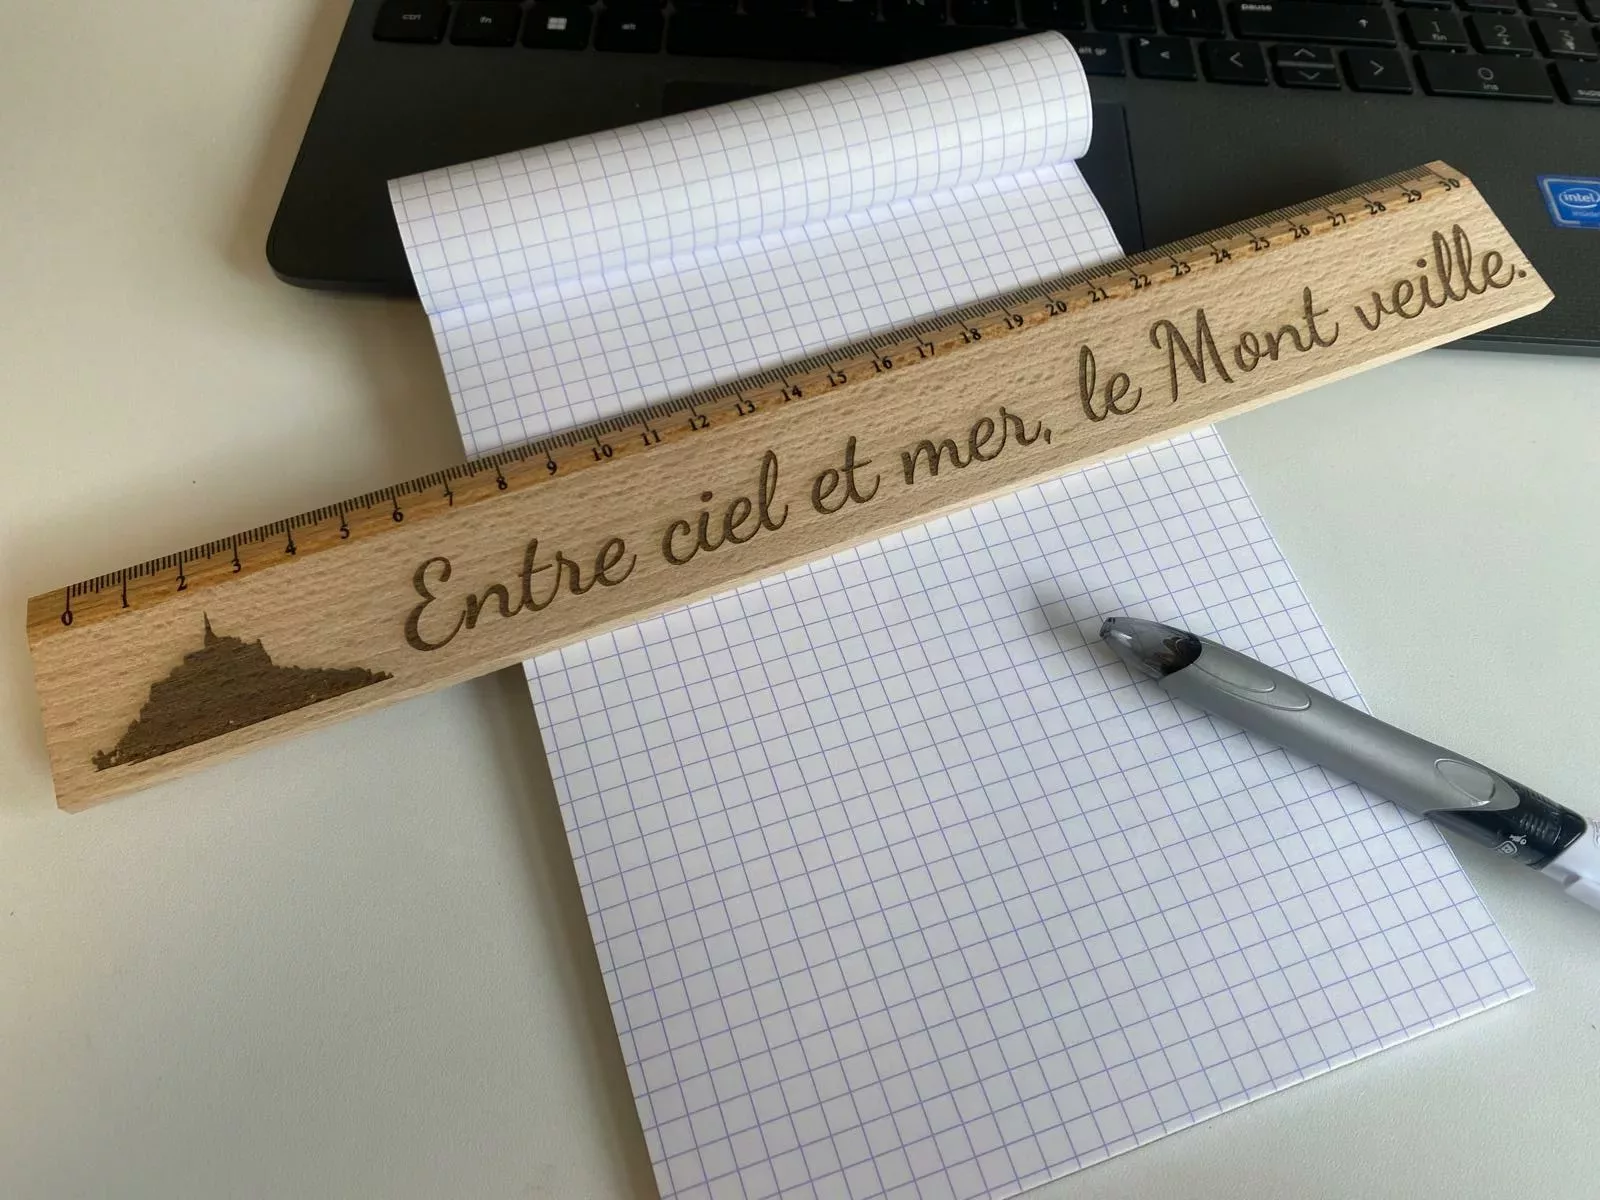 ctrl
fn
alt
alt gr
pause
1
fin
2
3
0
ins
intel
inside
0 1 2 3 4 5 6 7 8 9 10 11 12 13 14 15 16 17 18 19 20 21 22 23 24 25 26 27 28 29 30
Entre ciel et mer, le Mont veille.